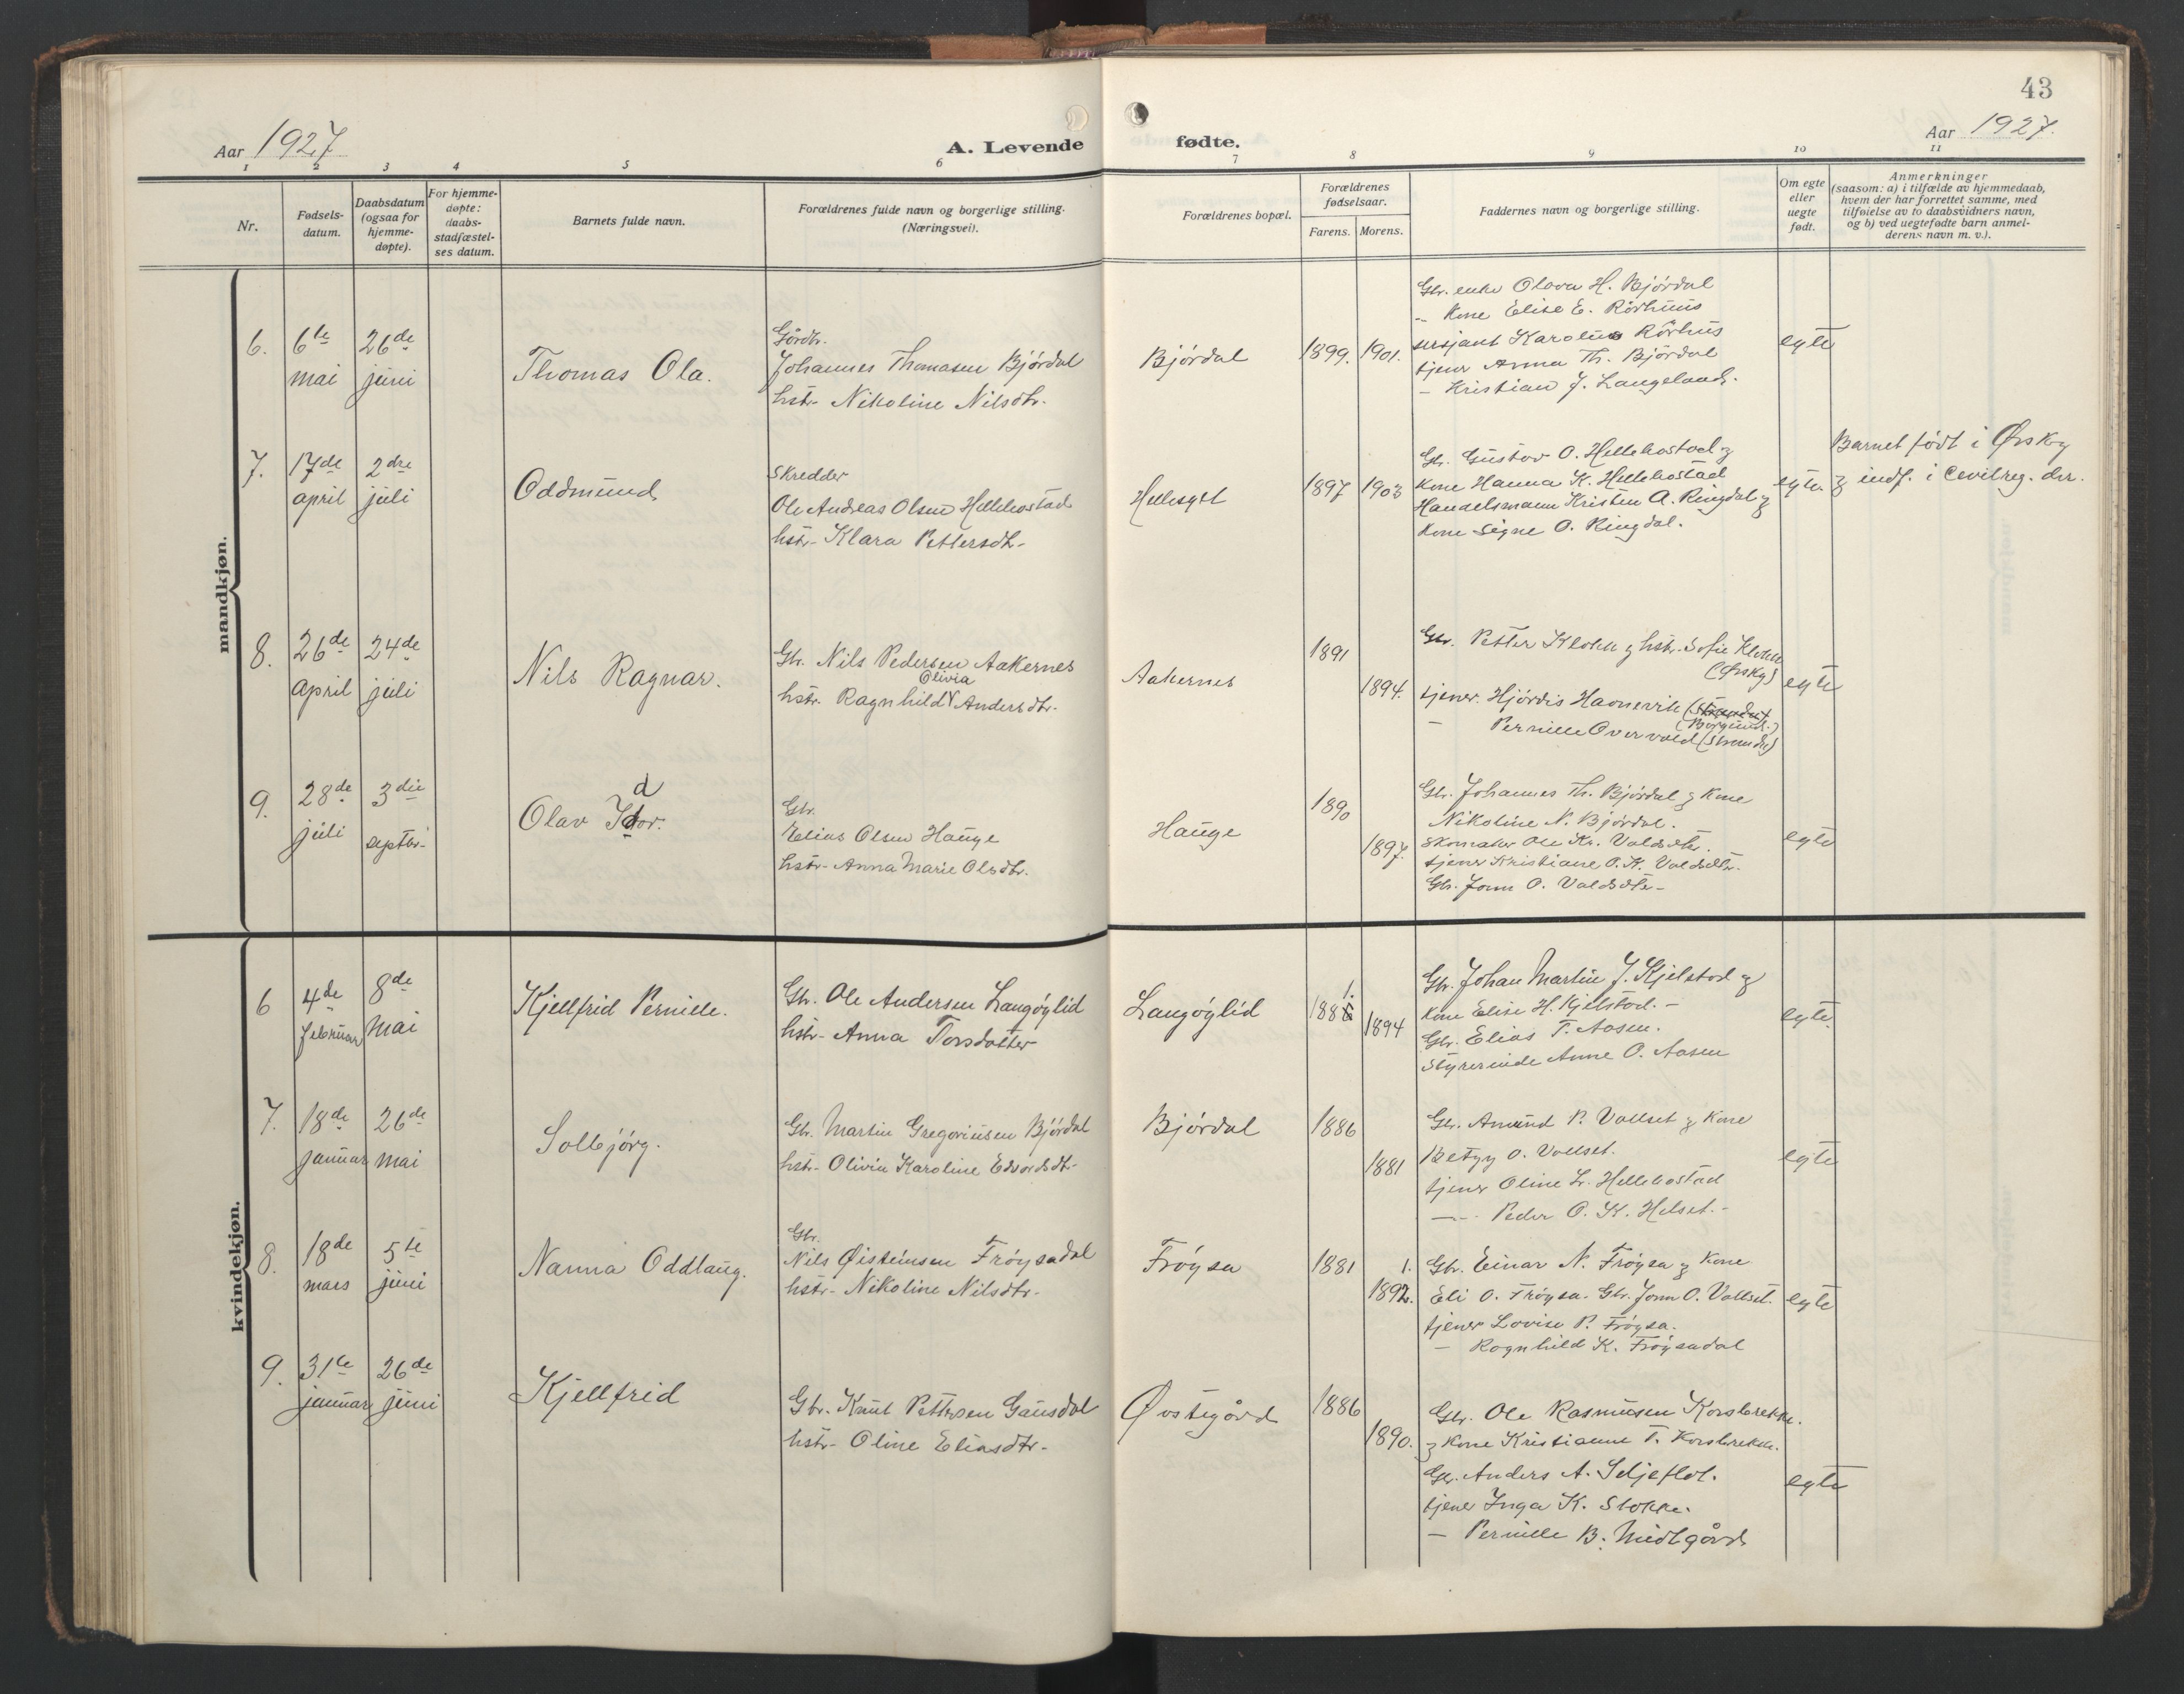 43
Aar 1927
A. Levende fødte.
Aar 1927.
1 2 3 4 5 6 7 8 9 10 11
Nr.
Fødsels-
datum.
Daabsdatum
(ogsaa for
hjemme-
døpte).
For hjemme-
døpte:
daabs-
stadfæstel-
ses datum.
Barnets fulde navn.
Forældrenes fulde navn og borgerlige stilling.
(Næringsvei).
Forældrenes bopæl.
Forældrenes
fødselsaar.
Farens. Morens.
Faddernes navn og borgerlige stilling.
Om egte
eller
uegte
født.
Anmerkninger
(saasom: a) i tilfælde av hjemmedaab,
hvem der har forrettet samme, med
tilføielse av to daabsvidners navn,
og b) ved uegtefødte barn anmel-
derens navn m. v.).
mandkjøn.
6.
6te
mai
26de
juni
Thomas Ola.
Gårdbr.
Johannes Thomasen Björdal
hstr. Nikoline Nilsdtr.
Björdal
1899. 1901.
Gbr. enke Olava H. Björdal
- Kone Elise E. Rörhuus
sersjant Karolius Rörhus
tjener Anna Th. Björdal
- Kristian J. Langeland.
egte
7.
17de
april
2dre
juli
Oddmund
Skredder
Ole Andreas Olsen Hellebostad
hstr- Klara Pettersdtr-
Hellesylt
1897 1903
Gbr. Gustav O. Hellebostad og
Kone Hanna K. Hellebostad
Handelsmann Kristen A. Ringdal og
Kone Signe O. Ringdal.
egte.
Barnet født i Ørskog
og indf. i Cevilreg. der.
8.
26de
april
24de
juli
Nils Ragnar.
Gbr. Nils Pedersen Aakernes
Olivia
hstr. Ragnhild Andersdtr.
Aakernes
1891
1894.
Gbr. Petter Klokk og hstr. Sofie Klokk
(Ørskog)
tjener. Hjördis Havnevik (Stranda)
(Borgund.)
- Pernille Overvold (Stranda)
egte
9.
28de
juli
3die
septbr-
d
Olav Idor.
Gbr.
Elias Olsen Hauge
hstr- Anna Marie Olsdtr.
Hauge
1890
1897.
Gbr. Johannes Th. Björdal og Kone
Nikoline N. Björdal.
Skomaker Ole Kr. Valdsdtr.
tjener Kristiane O. K. Valdsdtr.
Gbr. Jonn O. Valdsdtr-
egte
kvindekjøn.
6
4de
februar
8de
mai
Kjellfrid Pernille.
Gbr. Ole Andersen Langöylid
hstr- Anna Torsdatter
Langöylid
1.
188
1894
Gbr. Johan Martin J. Kjelstad og
Kone Elise H. Kjelstad.-
Gbr. Elias T. Aasen.
Styrerinde Anne O. Aasen
egte.
7.
18de
januar
26de
mai
Solbjörg.
Gbr. Martin Gregoriusen Björdal
hstr- Olivia Karoline Edvardsdtr-
Björdal
1886
1881
Gbr. Amund P. Vollset og Kone
Betzy O. Vollset.
tjener Oline L. Hellebostad
-- Peder O. K. Helset.-
egte
8.
18de
mars
5te
juni
Nanna Oddlaug.
Gbr.
Nils Øisteinsen Fröysadal
hstr- Nikoline Nilsdtr-
Fröysa
1881
1.
1892.
Gbr. Einar N. Fröysa og Kone
Eli O. Fröysa. Gbr. Jonn O. Vollset.
tjener Lovise P. Fröysa.
- Ragnhild K. Fröysadal
egte
9.
31te
januar
26de
juni
Kjellfrid
Gbr. Knut Pettersen Gausdal
hstr- Oline Eliasdtr-
Øvstegård
1886
1890.
Gbr. Ole Rasmusen Korsbrekke.
og Kone Kristianne T. Korsbrekke.
Gbr. Anders A. Seljeflot.
tjener Inga K. Stokke.
- Pernille B. Midtgård
egte